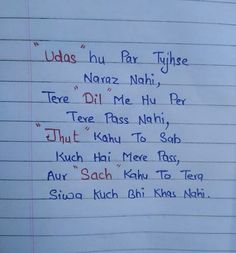 "Udas" hu Par Tujhse
Naraz Nahi,
Tere "Dil" Me Hu Per
Tere Pass Nahi,
"Jhut" Kahu To Sab
Kuch Hai Mere Pass,
Aur "Sach" Kahu To Tera
Siwa Kuch Bhi Khas Nahi.